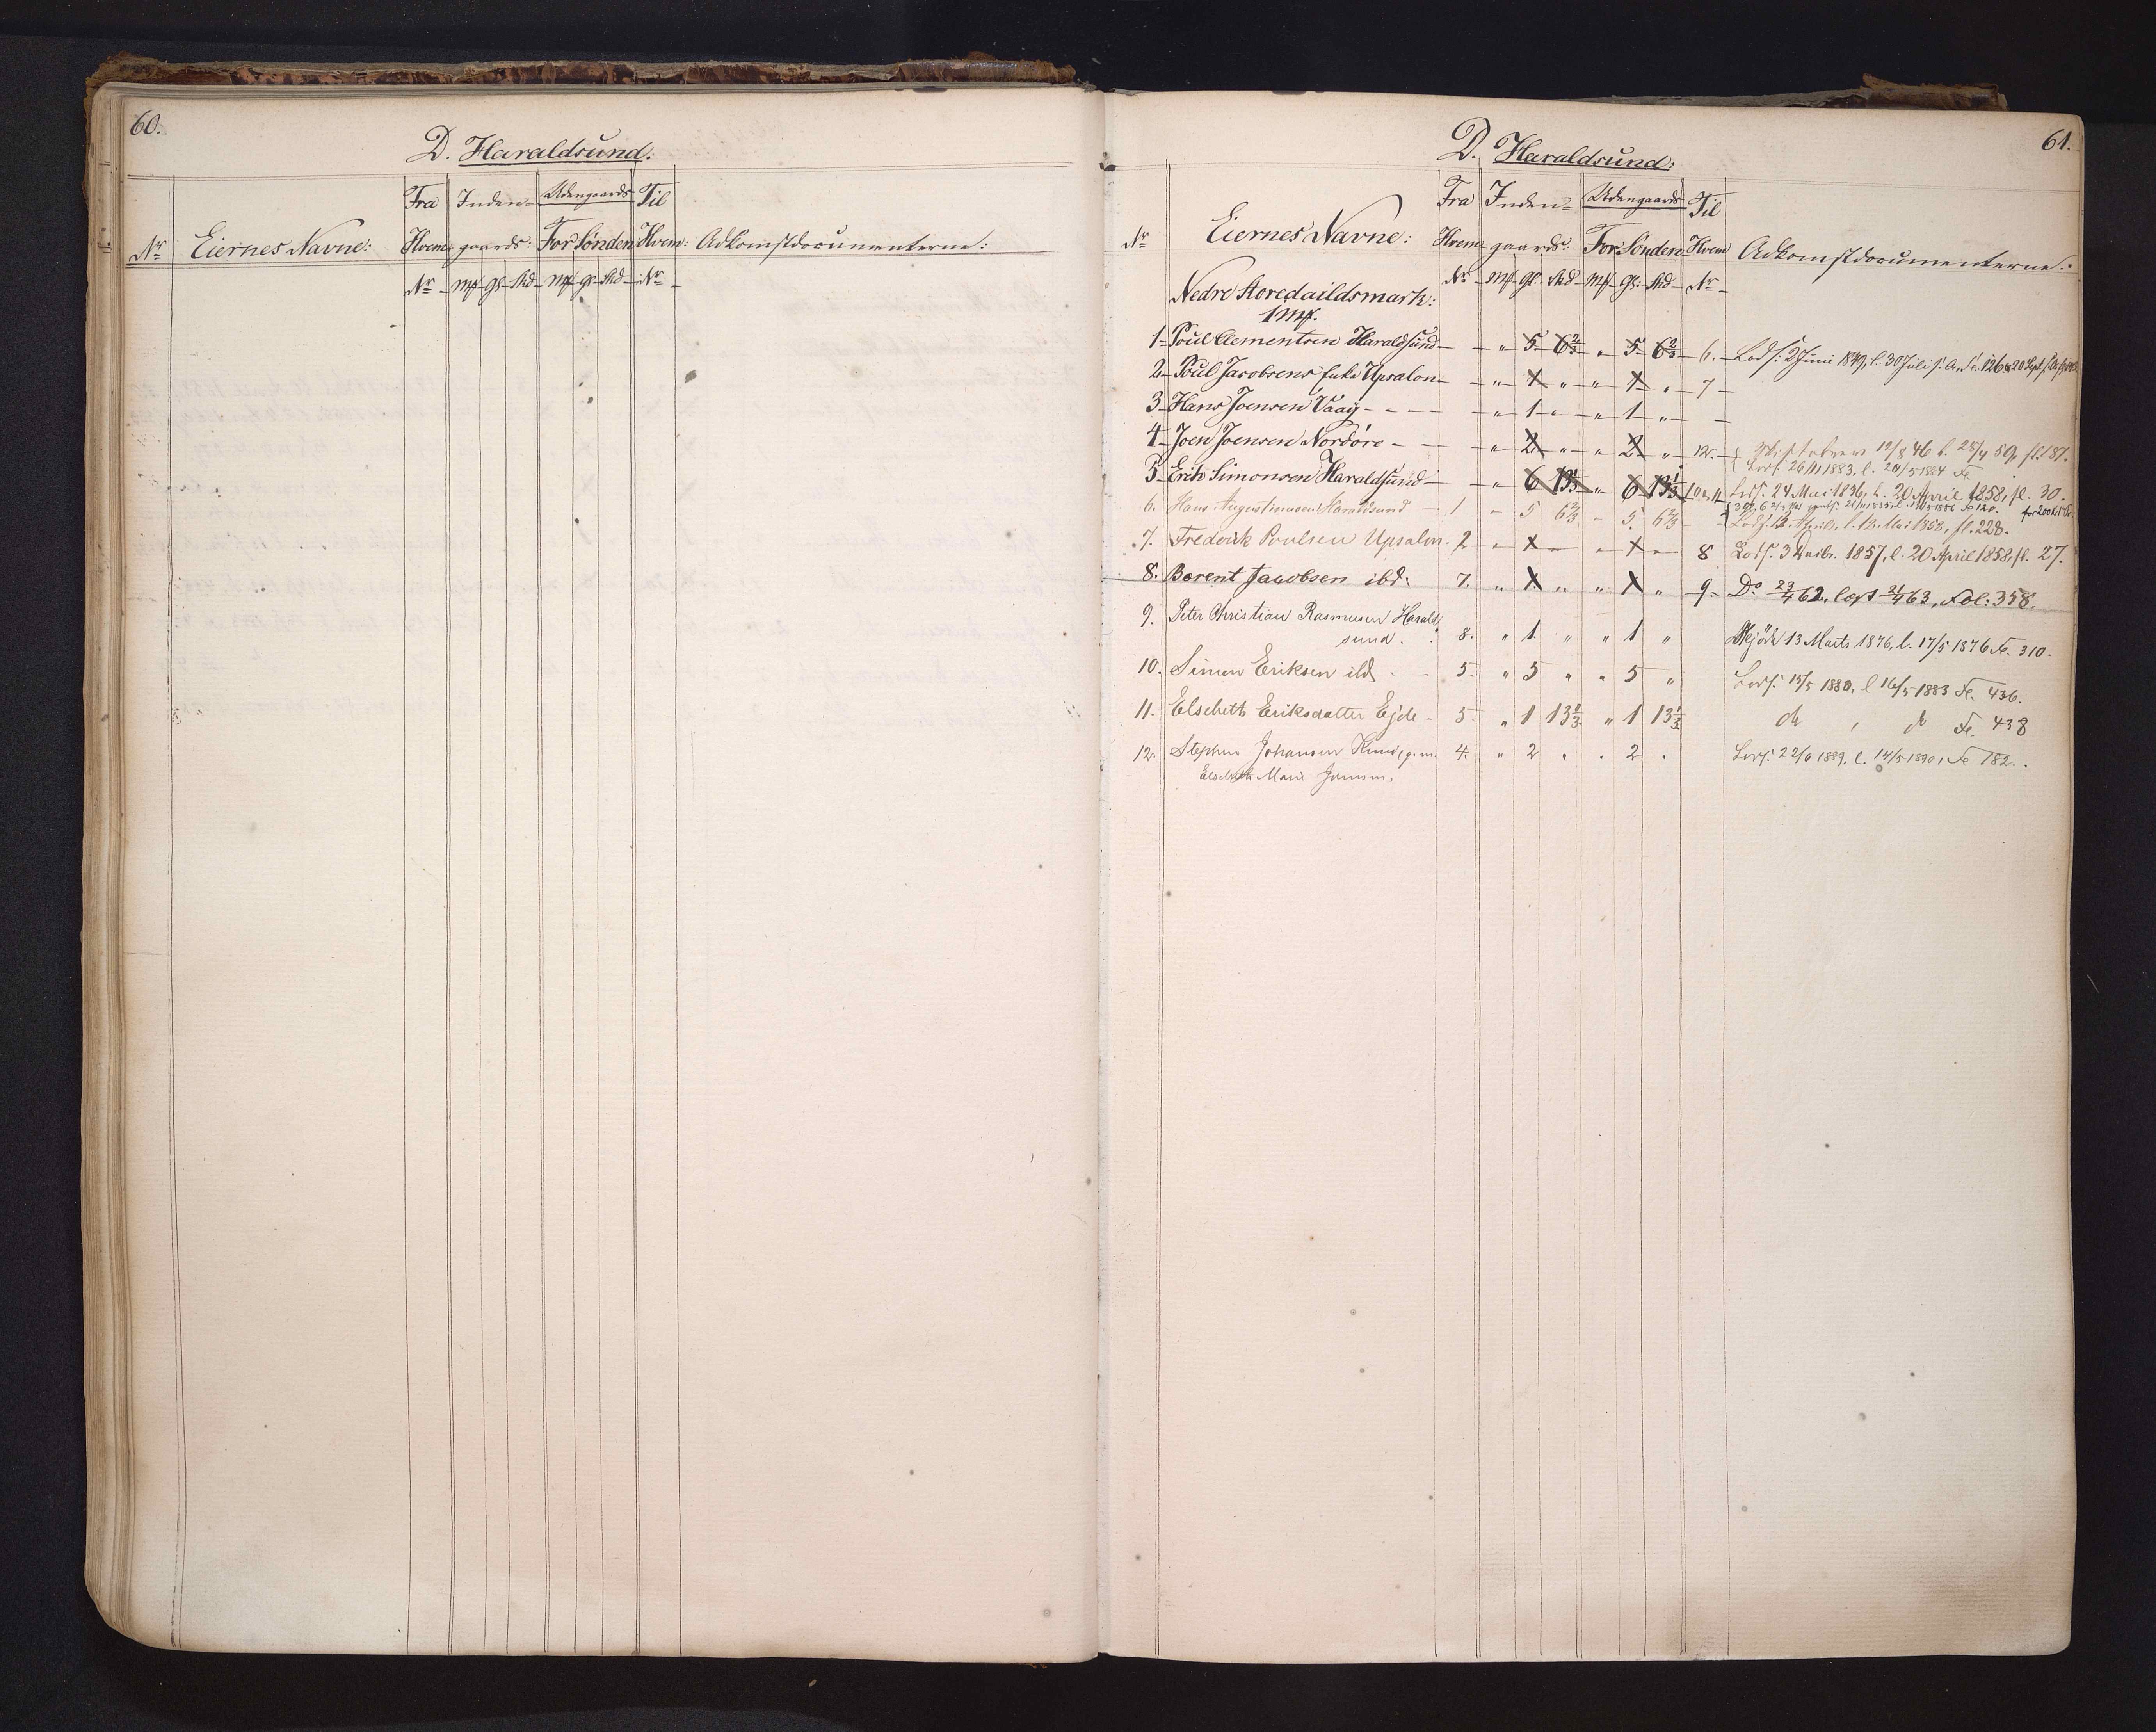 60.
D. Haraldsund:
Nr Eiernes Navne: Fra Hvem Inden= gaards: Udengaards For Sønden Til Hvem Adkomstdocumenterne:
Nr Mk Gl Skd Mk Gl Skd Nr
61.
D. Haraldsund:
Nr Eiernes Navne: Fra Hvem Inden= gaards: Udengaards For Sønden Til Hvem Adkomstdocumenterne:
Nr Mk Gl. Skd Mk Gl. Skd Nr
Nedre Storedaildsmark:
1 Mk.
1 Poul Clementsen Haraldsund " 5 6 2/3 " 5 6 2/3 6. Lods. 2 Juni 1849, l. 30 Juli s. A.
2 Poul Jacobsens Enke Upsalon " 1 " " 1 " 7
3 Hans Joensen Vaag " 1 " " 1 "
4 Joen Joensen Nordøre " 2 " " 2 " 12. Skiftebrev 12/8 46 l. 28/4 59, fl. 187.
Lods. 26/11 1883, l. 20/5 1884 Fo.
5 Erik Simonsen Haraldsund " 6 13 1/3 " 6 13 1/3 10 & 11 Lods. 24 Mai 1836, l. 20 April 1858, fl. 30.
6. Hans Augustinussen Haraldsund 1 " 5 6 2/3 " 5 6 2/3 Lods. 13 April, l. 18 Mai 1858, fl. 228.
7. Fredrik Poulsen Upsalon. 2 " 1 " " 1 " 8 Lods. 3 Decbr. 1857, l. 20 April 1858, fl. 27.
8. Berent Jacobsen ibd: 7. " 1 " " 1 " 9. Do 23/4 62, læst 21/4 63, Fol: 358.
9. Peter Christian Rasmusen Harald
sund. 8. " 1 " " 1 " Skjøde 13 Marts 1876, l. 17/5 1876 Fo. 310.
10. Simon Eriksen ibd 5. " 5 " " 5 " Lods. 15/5 1880, l 16/5 1883 Fo. 436.
11. Elsebeth Eriksdatter Ejde 5 " 1 13 1/3 " 1 13 1/3 do , do Fo. 438
12. Stephen Johansen g. m. 4. " 2 " " 2 " Lods. 22/6 1889. l. 14/5 1890, Fo 182.
Elsebeth Marie Joensen.